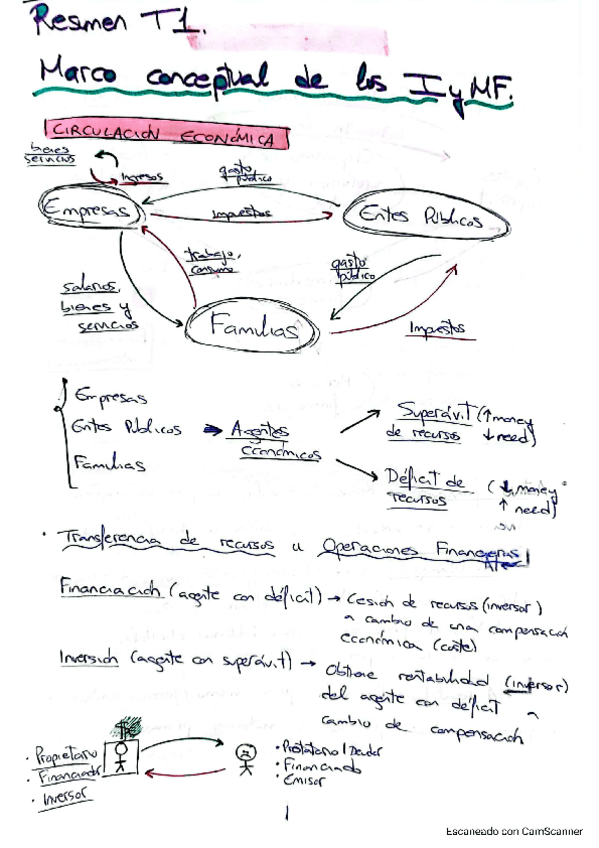 Resumen T1.
Marco conceptual de los I y MF.
CIRCULACIÓN ECONÓMICA
bienes
servicios
Ingresos
gasto
público
Empresas
Impuestos
Entes Públicos
trabajo,
consumo
gasto
público
salarios,
bienes y
servicios
Familias
Impuestos
Empresas
Entes Públicos → Agentes
económicos
Familias
Superávit (↑money
de recursos ↓need)
Déficit de (↓money
recursos ↑need)
· Transferencia de recursos u Operaciones Financieras
Financiación (agente con déficit) → Cesión de recursos (inversor)
a cambio de una compensación
económica (coste)
Inversión (agente con superávit) → Obtiene rentabilidad (inversor)
del agente con déficit a
cambio de compensación
$
· Propietario
· Financiador
· Inversor
· Prestatario / Deudor
· Financiado
· Emisor
1
Escaneado con CamScanner